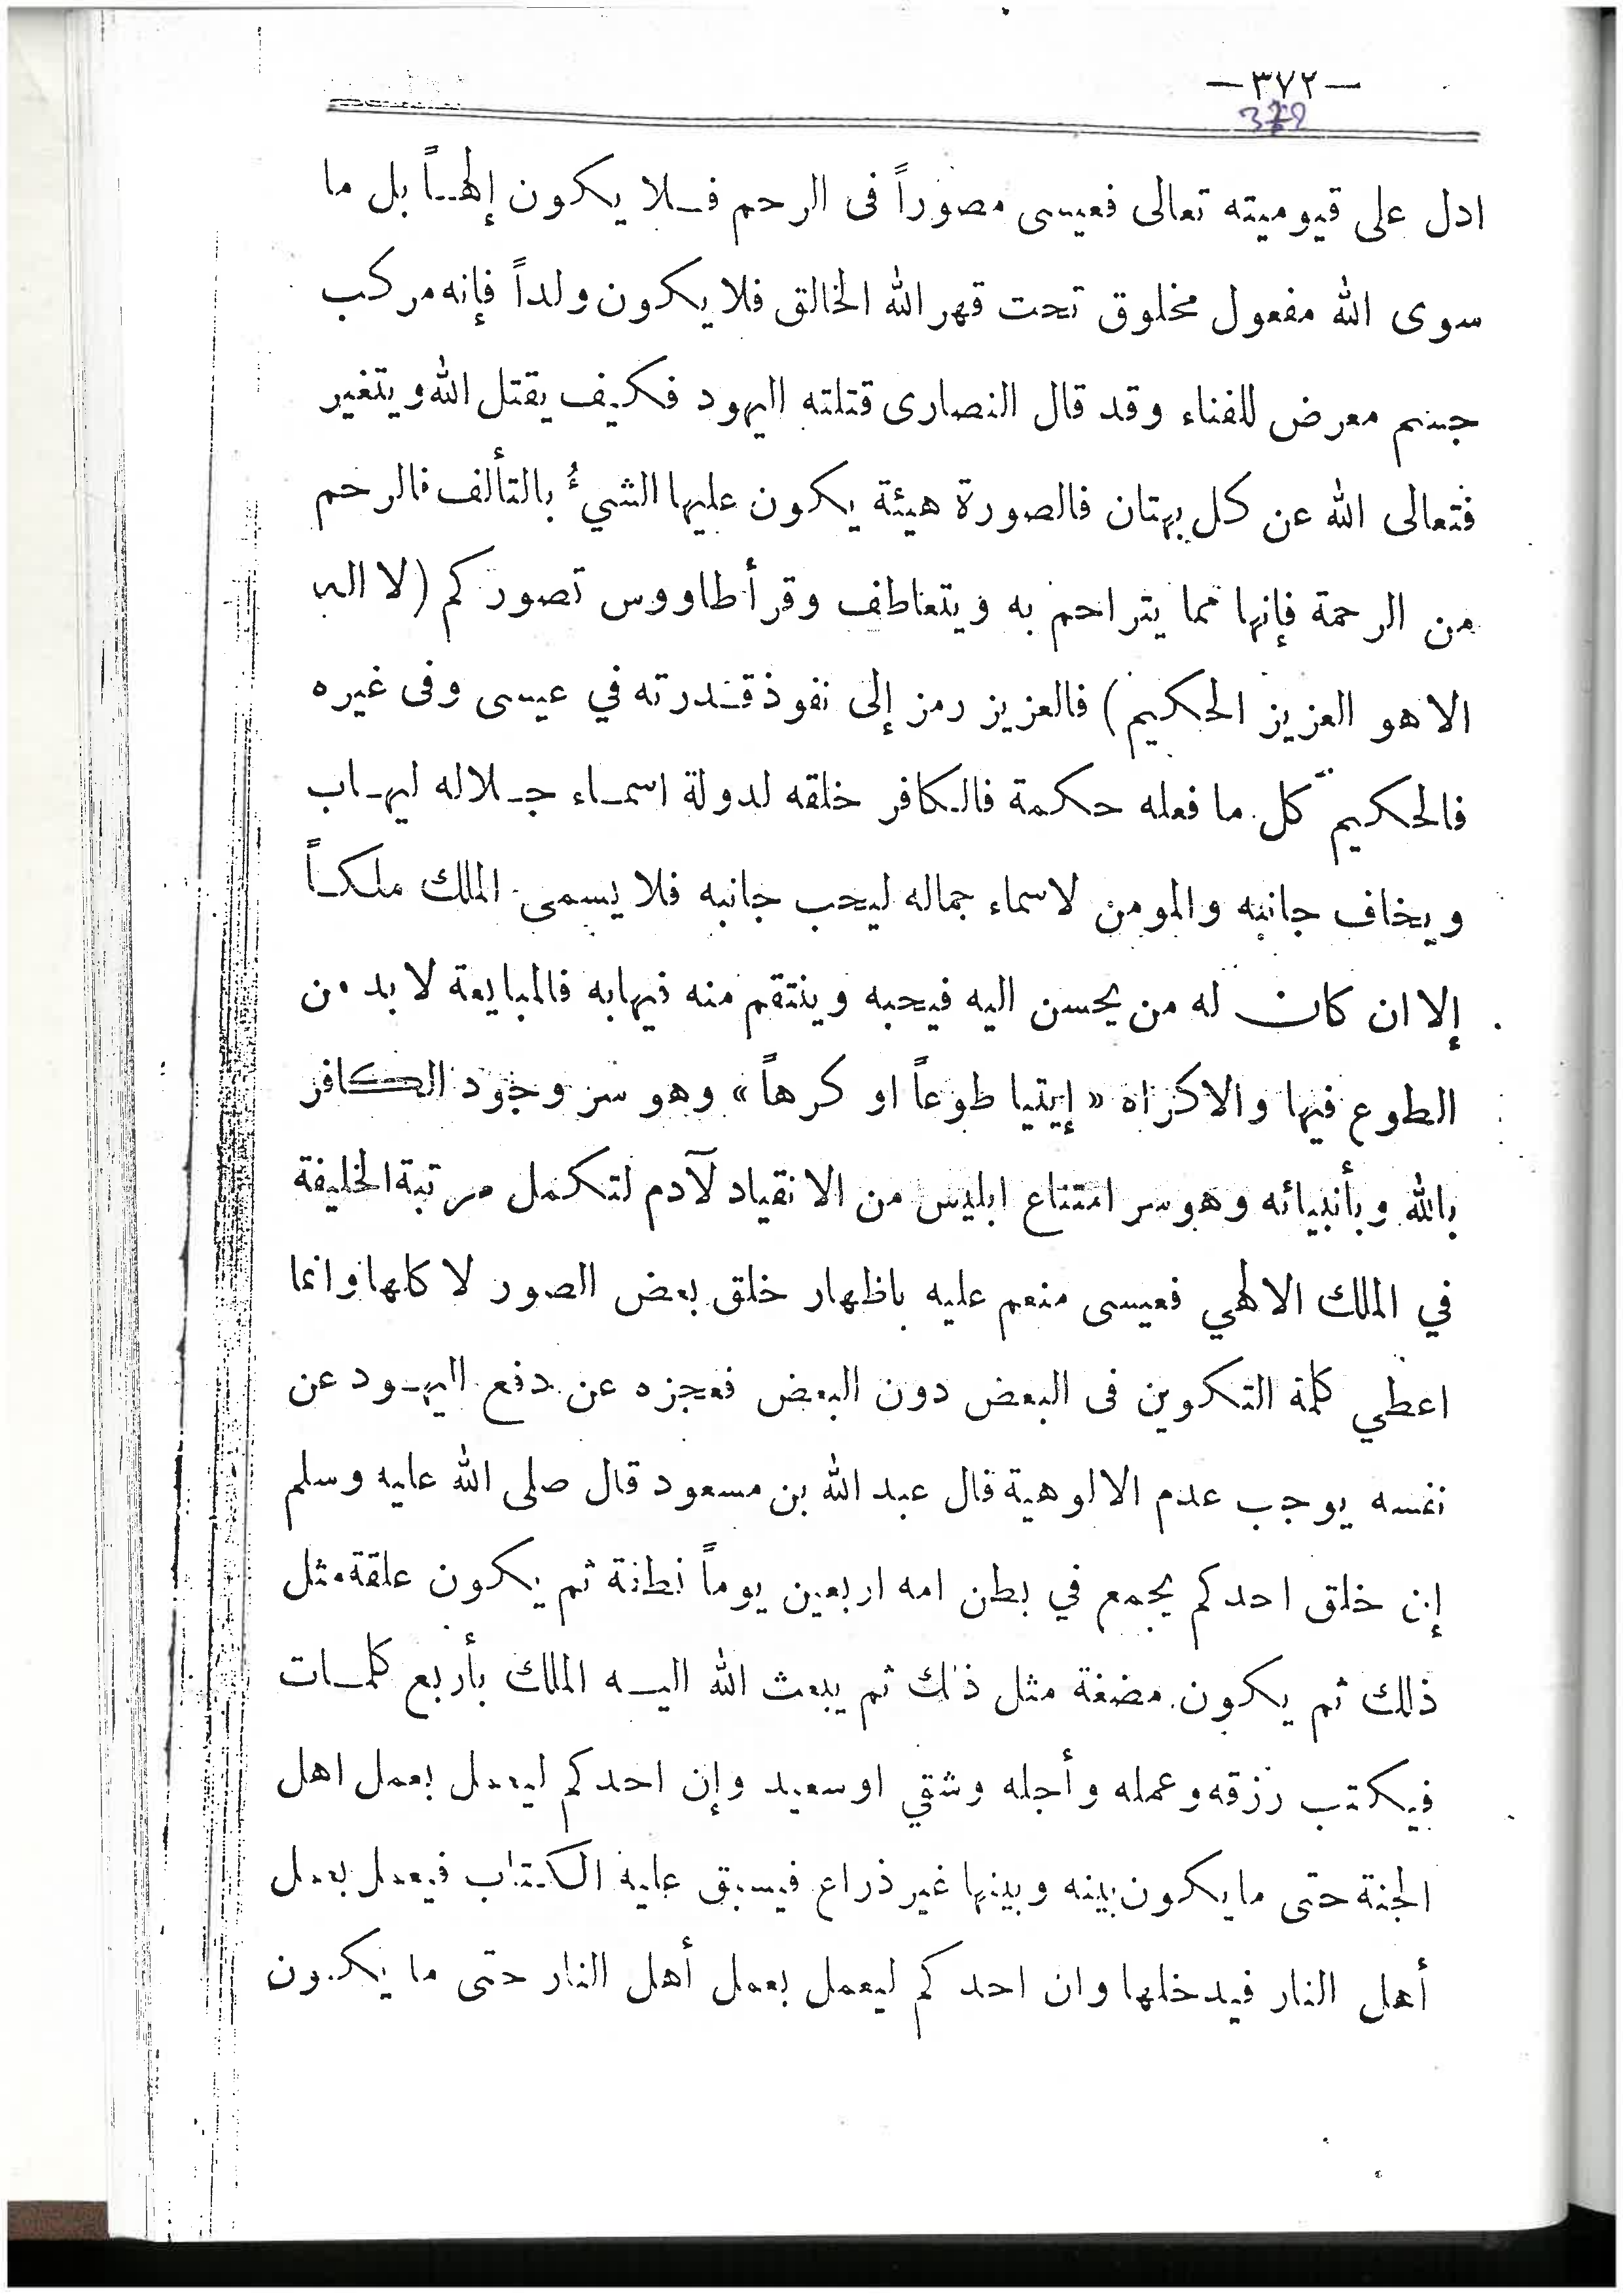 —٣٧٢—
372
ادل على قيوميته تعالى فعيسى مصوراً فى الرحم فـلا يكون إلهـاً بل ما
سوى الله مفعول مخلوق تحت قهر الله الخالق فلا يكون ولداً فإنه مركب
جسم معرض للفناء وقد قال النصارى قتلته اليهود فكيف يقتل الله ويتغير
فتعالى الله عن كل بهتان فالصورة هيئة يكون عليها الشيءُ بالتألف فالرحم
من الرحمة فإنها مما يتراحم به ويتعاطف وقرأ طاووس تصوركم (لا اله
الا هو العزيز الحكيم) فالعزيز رمز إلى نفوذ قـدرته في عيسى وفى غيره
فالحكيم كل ما فعله حكمة فالكافر خلقه لدولة اسمـاء جـلاله ليهـاب
ويخاف جانبه والمومن لاسماء جماله ليحب جانبه فلا يسمى الملك ملكـاً
إلا ان كان له من يحسن اليه فيحبه وينتقم منه فيهابه فالمبايعة لا بد من
الطوع فيها والاكراه «إيتيا طوعاً او كرهاً» وهو سر وجود الكافر
بالله وبأنبيائه وهو سر امتناع ابليس من الانقياد لآدم لتكمل مرتبة الخليفة
في الملك الالهي فعيسى منعم عليه باظهار خلق بعض الصور لا كلها وانما
اعطي كلمة التكوين فى البعض دون البعض فعجزه عن دفع اليهـود عن
نفسه يوجب عدم الالوهية قال عبد الله بن مسعود قال صلى الله عليه وسلم
إن خلق احدكم يجمع في بطن امه اربعين يوماً نطفة ثم يكون علقة مثل
ذلك ثم يكون مضغة مثل ذلك ثم يبعث الله اليـه الملك بأربع كلمـات
فيكتب رزقه وعمله وأجله وشقي او سعيد وإن احدكم ليعمل بعمل اهل
الجنة حتى ما يكون بينه وبينها غير ذراع فيسبق عليه الكتاب فيعمل بعمل
أهل النار فيدخلها وان احدكم ليعمل بعمل أهل النار حتى ما يكون